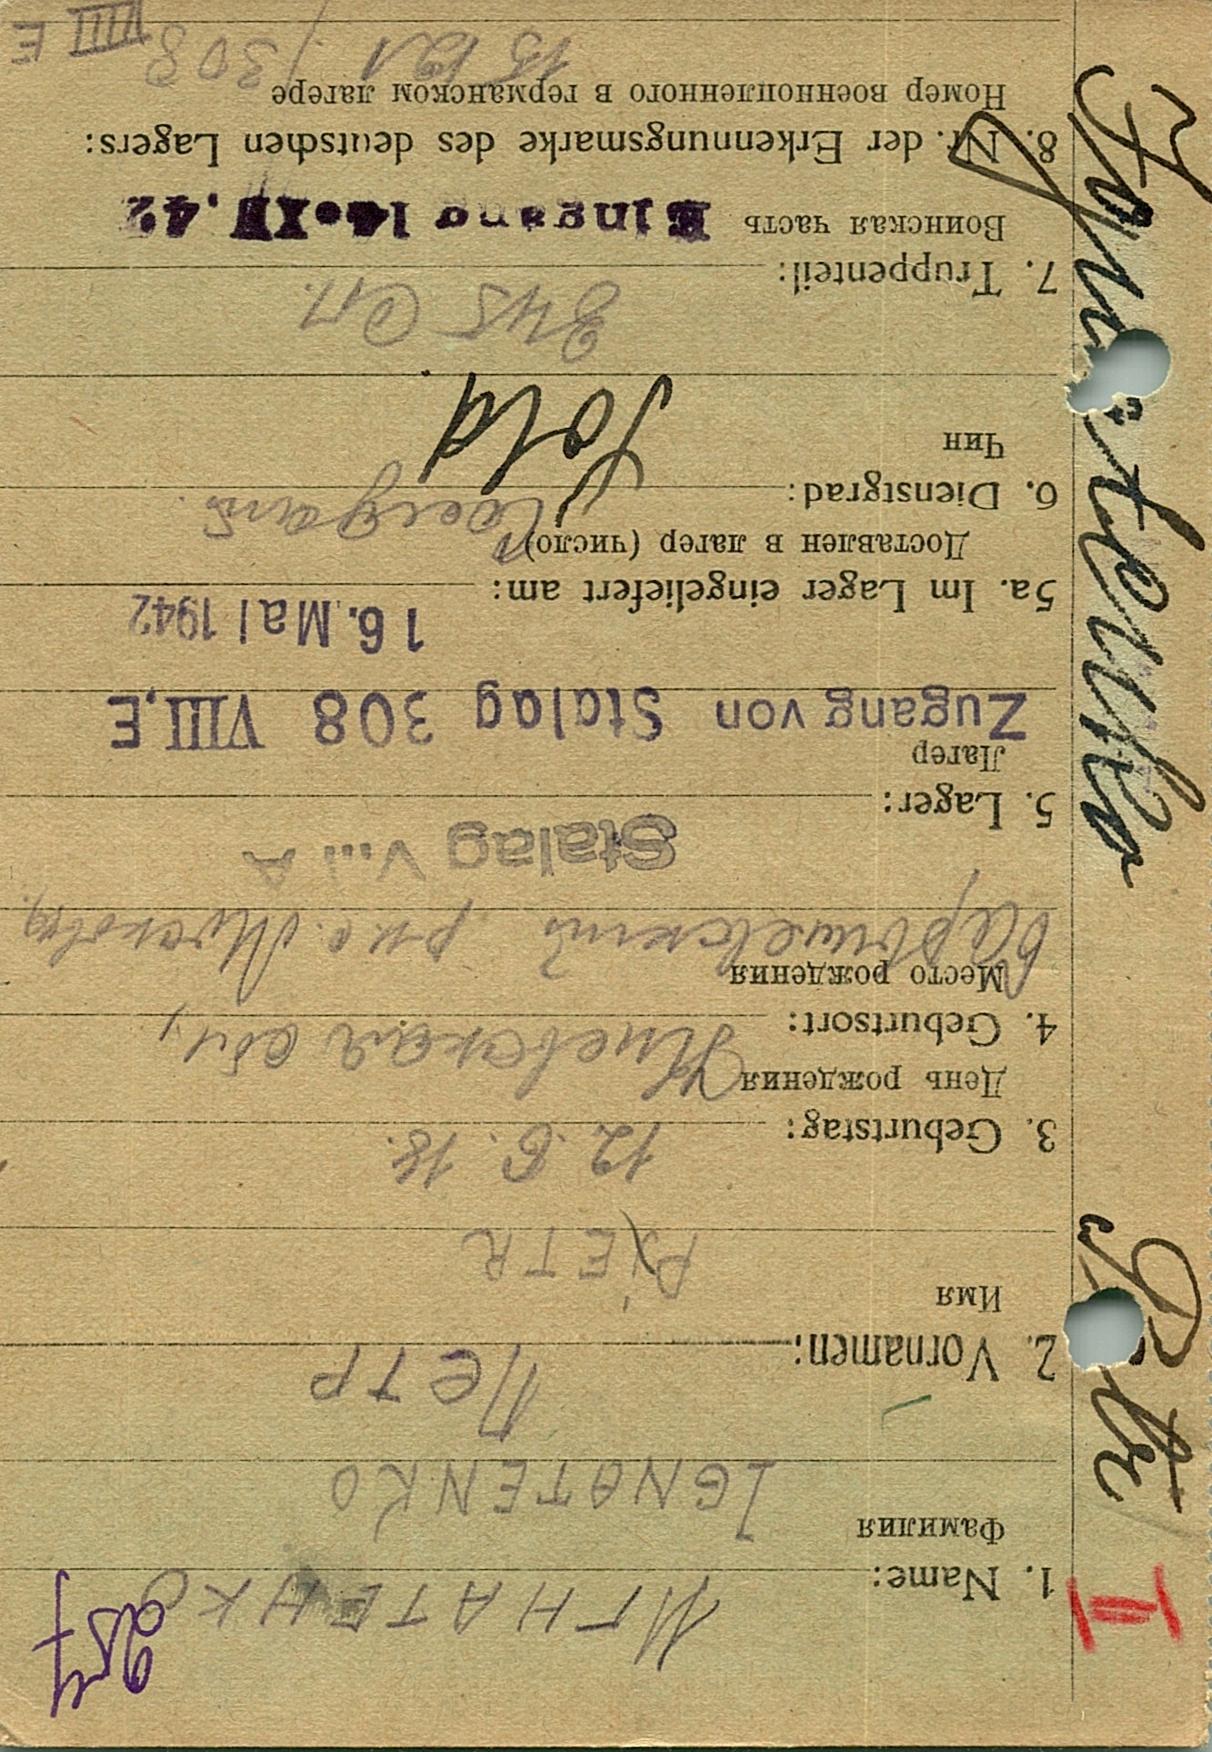 257
1. Name: ИГНАТЕНКО
Фамилия
IGNATENKO
2. Vornamen: ПЕТР
Имя
PJETR
3. Geburtstag: 12.6.18.
День рождения
4. Geburtsort: Киевская обл,
Место рождения
Барышевский
Stalag V... A
5. Lager:
Лагер
Zugang von Stalag 308 VIII.E
16. Mai 1942
5a. Im Lager eingeliefert am:
Доставлен в лагер (число)
6. Dienstgrad: Sold
Чин
845 Сп.
7. Truppenteil:
Воинская часть Eingang 14.IV.42
8. Nr. der Erkennungsmarke des deutschen Lagers:
Номер военнопленного в германском лагере
308 VIII E
II Petr Ignatenko